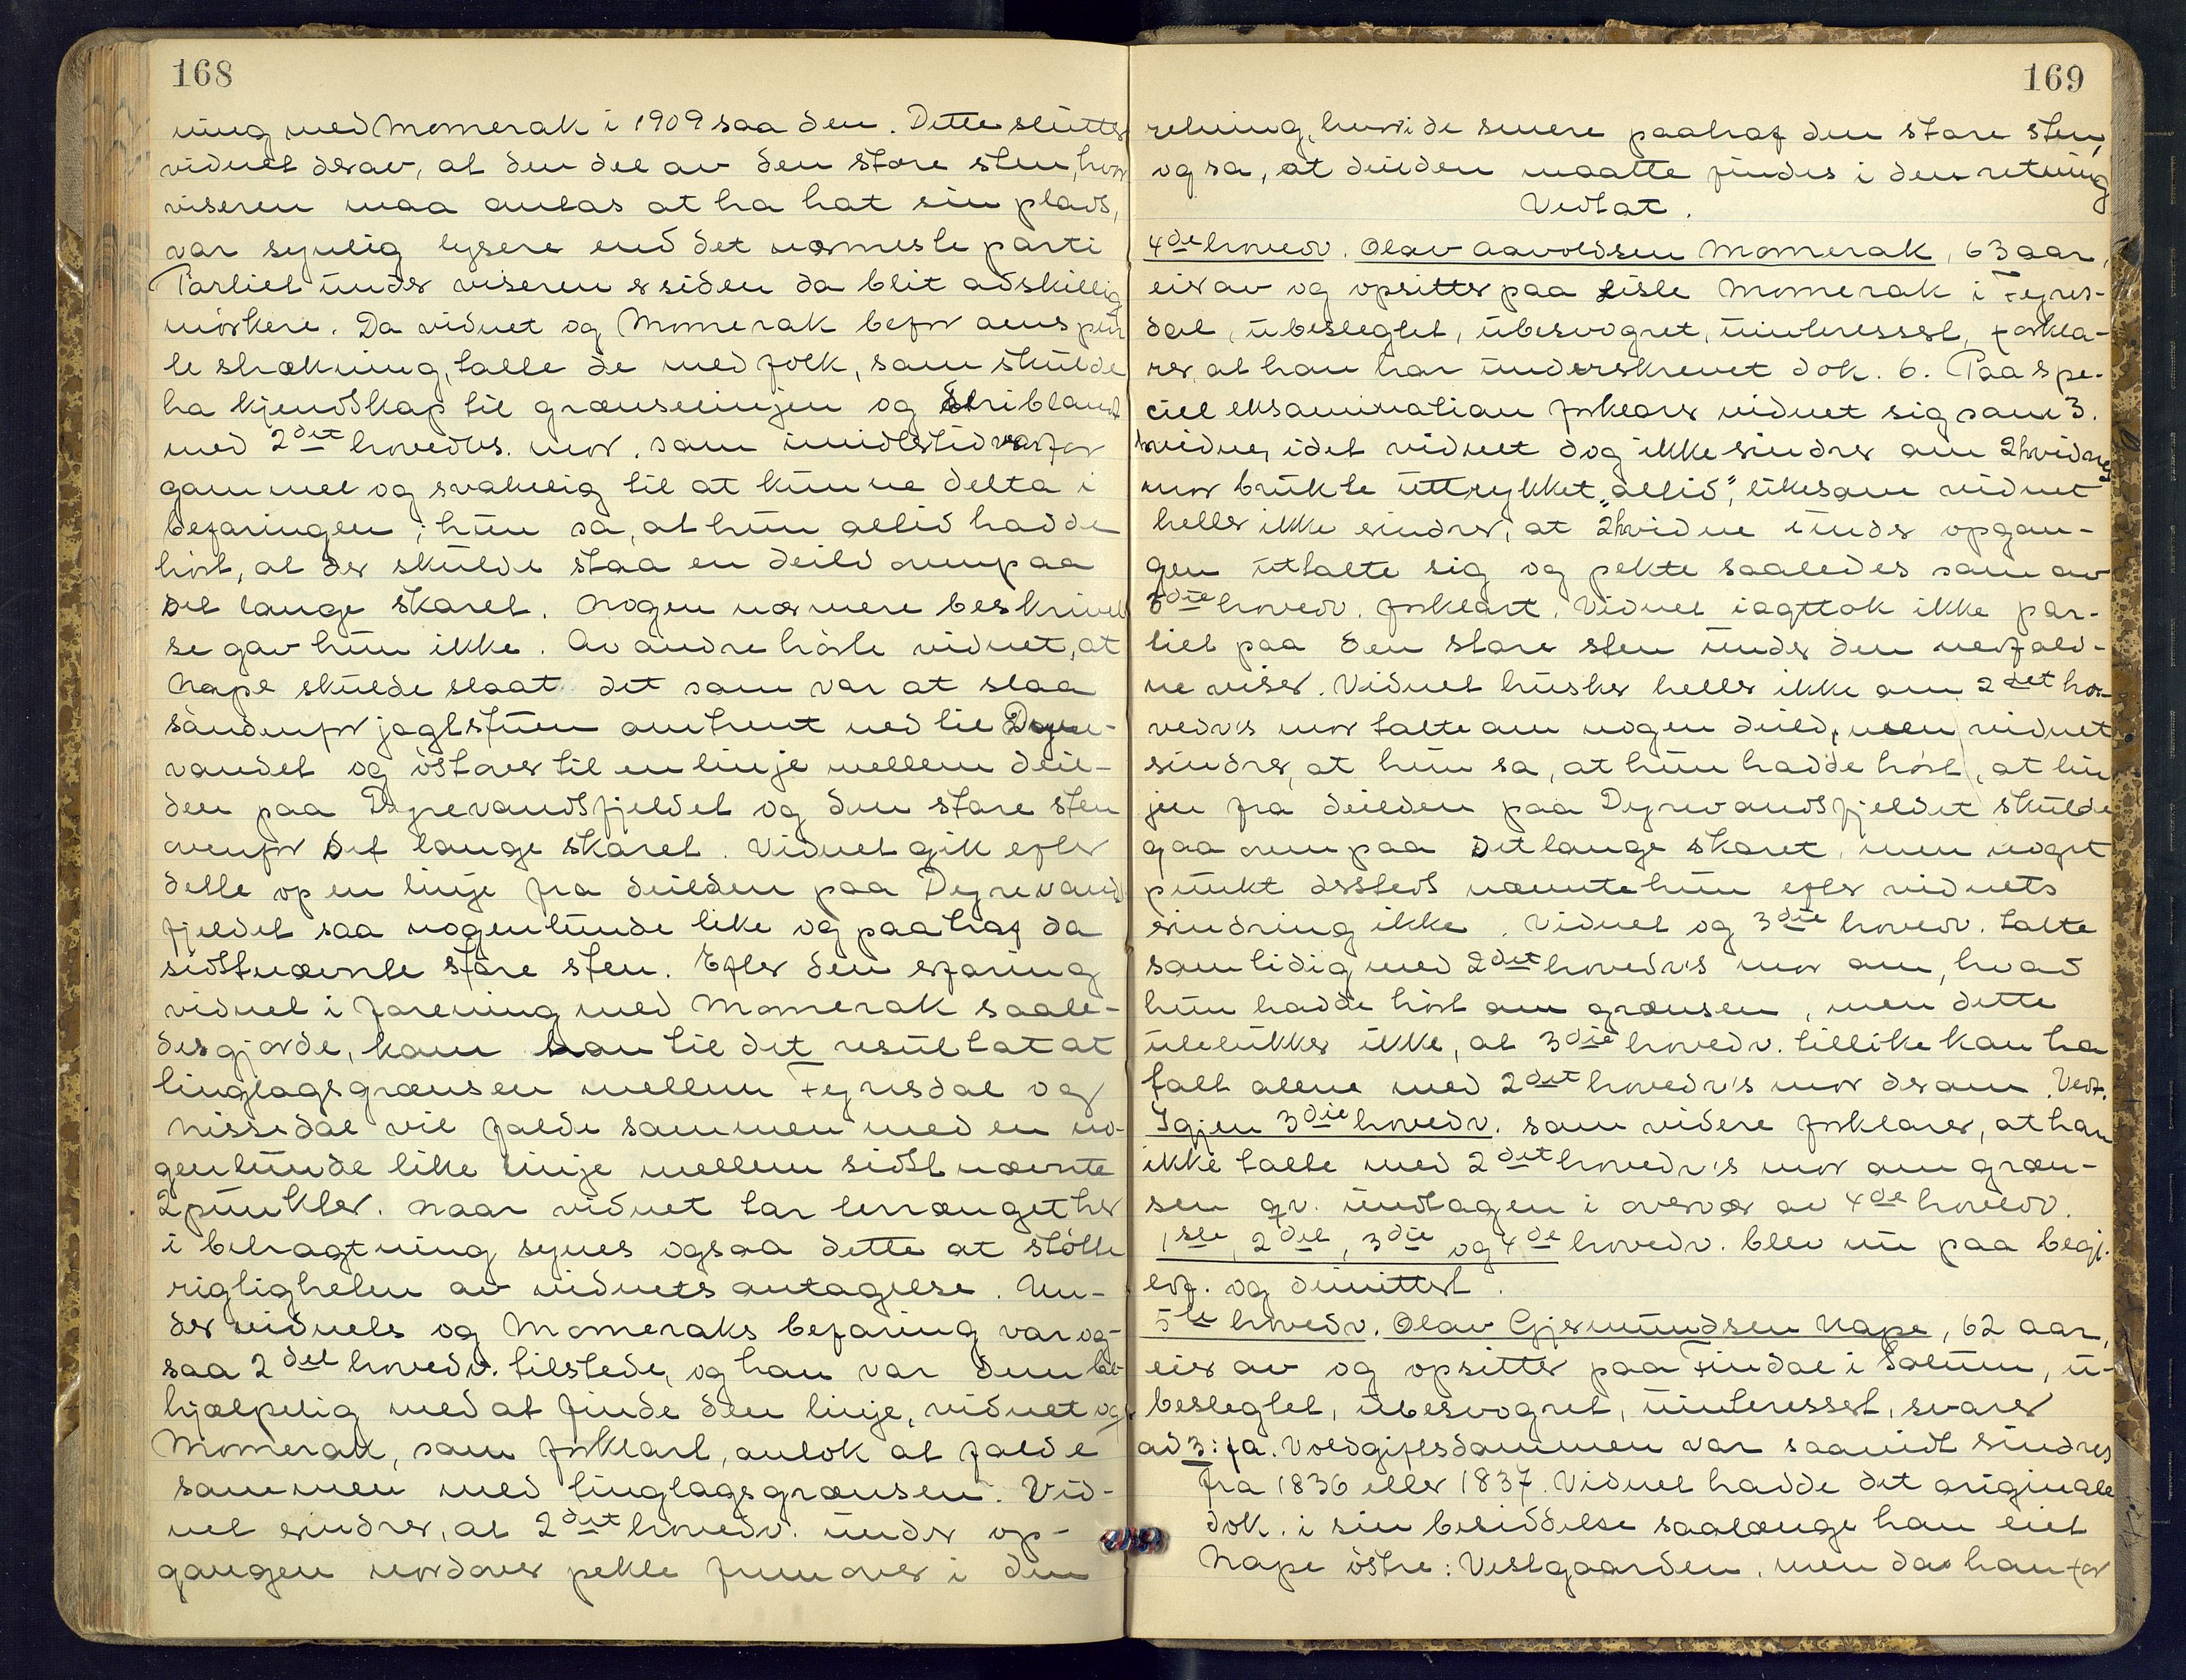 168
ning med Momerak i 1909 saa den. Dette slutter
vidnet derav, at den del av den store sten, hvor
viseren maa antas at ha hat sin plads,
var synlig lysere end det nærmeste parti
Partiet under viseren er siden da blit adskillig
mörkere. Da vidnet og Momerak befor aens
te strækning, talte de med folk, som skulde
ha kjendskap til grænselinjen og iblandt
med 2det hovedvs. mor, som imidlertid var for
gammel og svakelig til at kunne delta i
befaringen; hun sa, at hun altid hadde
hört, at der skulde staa en deild ovenpaa
det lange skaret. Nogen nærmere beskrivel
se gav hun ikke. Av andre hörte vidnet, at
Nape skulde slaat det som var at slaa
söndenfor jagtstuen omtrent ned til Dyre-
vandet og östover til en linje mellem deil-
den paa Dyrevandsfjeldet og den store sten
ovenfor det lange skaret. Vidnet gik efter
dette op en linje fra deilden paa Dyrevand
fjeldet saa nogenlunde like og paatraf da
sidstnævnte store sten. Efter den erfaring
vidnet i forening med Momerak saale-
des gjorde, kom han til det resultat at
tinglagsgrænsen mellem Fyresdal og
Nissedal vil falde sammen med en no-
genlunde like linje mellem sidstnævnte
2 punkter. Naar vidnet tar terrænget her
i betragtning synes ogsaa dette at stötte
rigtigheten av vidnets antagelse. Un-
der vidnets og Momeraks befaring var og-
saa 2det hovedv. tilstede, og han var dem be-
hjælpelig med at finde den linje, vidnet og
Momerak, som forklart, antok at falde
sammen med tinglagsgrænsen. Vid-
net erindrer, at 2det hovedv. under op-
gangen nordover pekte fremover i den
169
retning, hvori de senere paatraf den store sten,
og sa, at deilden maatte findes i den retning
Vedtat.
4de hovedv. Olav Aavoldsen Momerak, 63 aar,
eier av og opsitter paa Lisle Momerak i Fyres-
dal, ubeslegtet, ubesvogret, uinteressert, forkla-
rer, at han har underskrevet dok. 6. Paa spe-
ciel eksamination forklarer vidnet sig som 3.
hvidne, idet vidnet dog ikke erindrer om 2hvidnes
mor brukte uttrykket „altid", likesom vidnet
heller ikke erindrer, at 2hvidne under opgan-
gen uttalte sig og pekte saaledes som av
3die hovedv. forklart. Vidnet iagttok ikke par-
tiet paa den store sten under den nedfald-
ne viser. Vidnet husker heller ikke om 2det ho-
vedv's mor talte om nogen deild, men vidnet
erindrer, at hun sa, at hun hadde hört, at lin
jen fra deilden paa Dyrevandsfjeldet skulde
gaa ovenpaa det lange skaret, men noget
punkt dersteds nævnte hun efter vidnets
erindring ikke. Vidnet og 3die hovedv. talte
samtidig med 2det hovedv's mor om, hvad
hun hadde hört om grænsen, men dette
utelukker ikke, at 3die hovedv. tillike kan ha
talt alene med 2det hovedv's mor derom. Vedt.
Igjen 3die hovedv. som videre forklarer, at han
ikke talte med 2det hovedv's mor om græn-
sen qv. undtagen i overvær av 4de hovedv.
1ste, 2det, 3die og 4de hovedv. blev nu paa begj.
edf. og demittert.
5te hovedv. Olav Gjermundsen Nape, 62 aar,
eier av og opsitter paa Findal i Solum, u-
beslegtet, ubesvogret, uinteressert, svarer
ad 3: ja. Voldgiftsdommen var saavidt erindres
fra 1836 eller 1837. Vidnet hadde det originale
dok. i sin besiddelse saalænge han eiet
Nape östre: Vestgaarden, men da han for